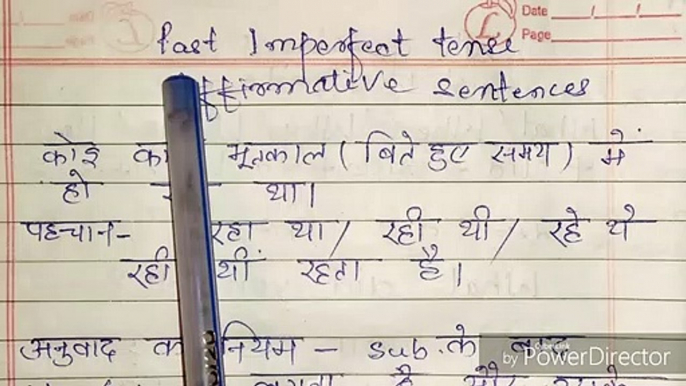 Date
Page
Past Imperfect tense
Affirmative sentences
कोई का भूतकाल ( बिते हुए समय ) में
हो था।
पहचान- रहा था / रही थी / रहे थे
रही थीं रहता है।
अनुवाद का नियम - sub. के
by PowerDirector